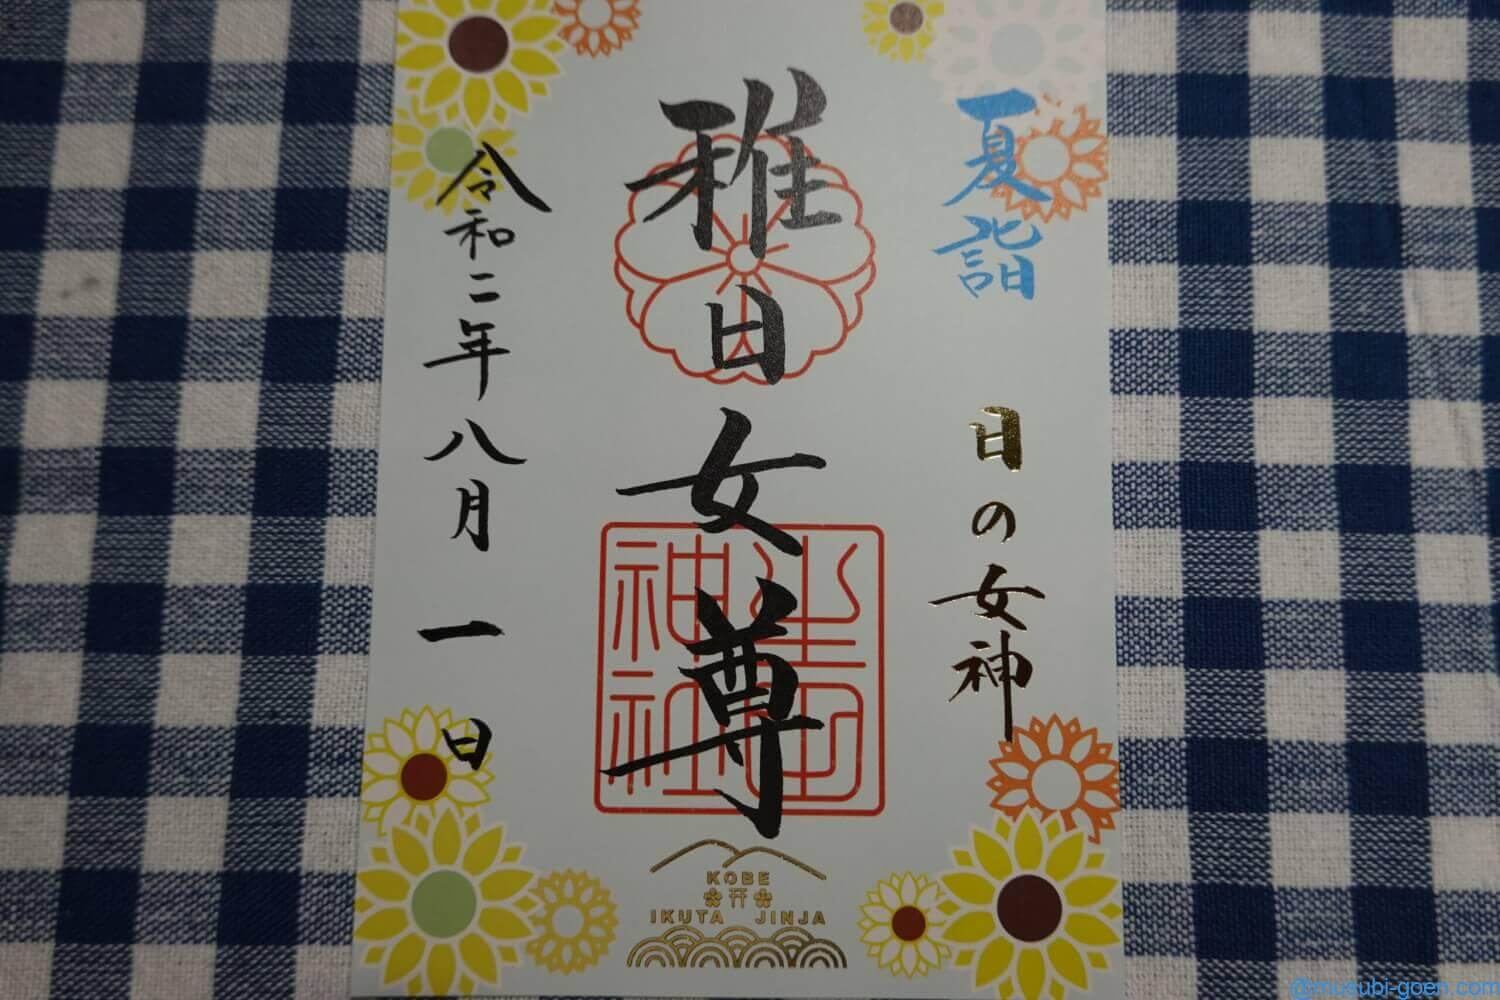 夏詣
日の女神
稚日女尊
生田
神社
令和二年八月一日
KOBE
IKUTA JINJA
@musubi-goen.com